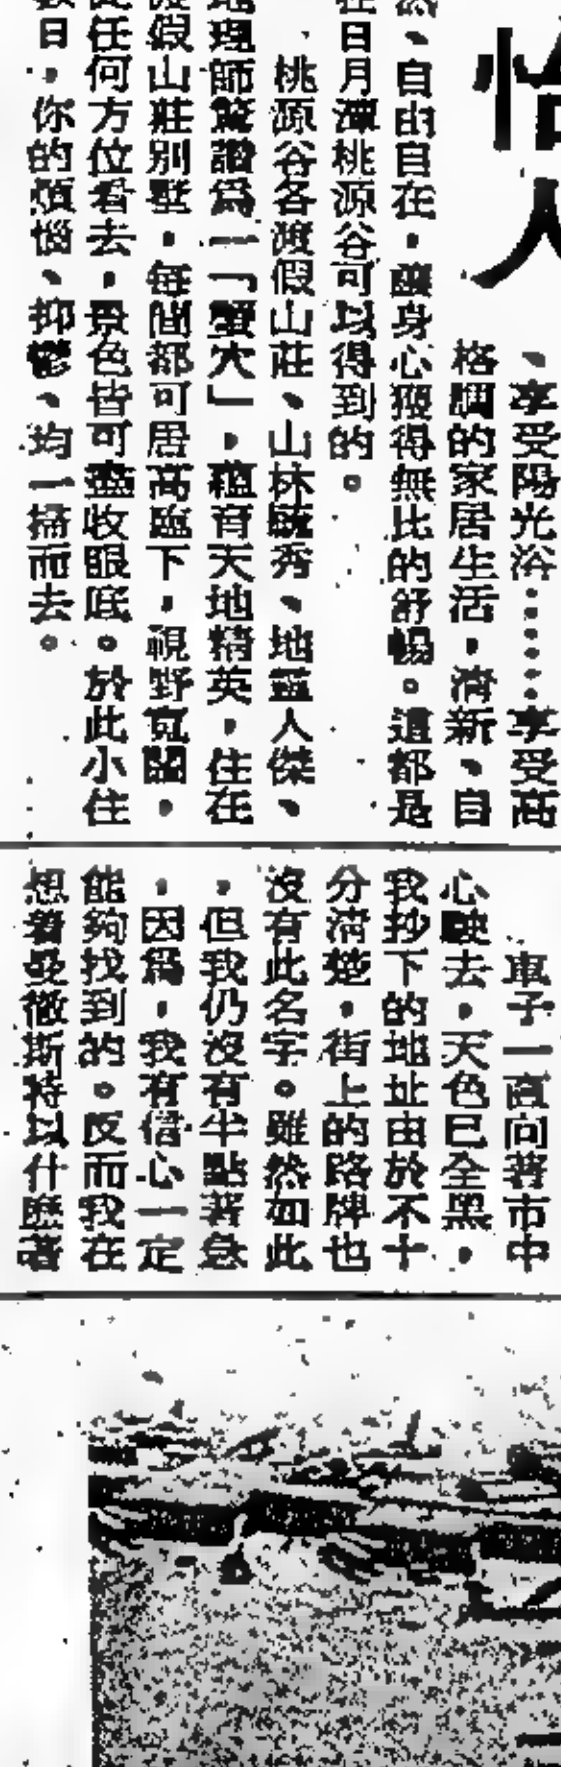 怡人
、享受陽光浴……享受高
格調的家居生活，清新、自
然、自由自在，讓身心獲得無比的舒暢。這都是
在日月潭桃源谷可以得到的。
桃源谷各渡假山莊、山林毓秀、地靈人傑、
地理師驚讚爲一「蟹穴」，蘊育天地精英，住在
渡假山莊别墅，每間都可居高臨下，視野寬闊，
從任何方位看去，景色皆可盡收眼底。於此小住
數日，你的煩惱、抑鬱、均一掃而去。
車子一直向著市中
心駛去，天色已全黑，
我抄下的地址由於不十
分清楚，街上的路牌也
沒有此名字。雖然如此
，但我仍沒有半點著急
，因爲，我有信心一定
能夠找到的。反而我在
想着曼徹斯特以什麼著